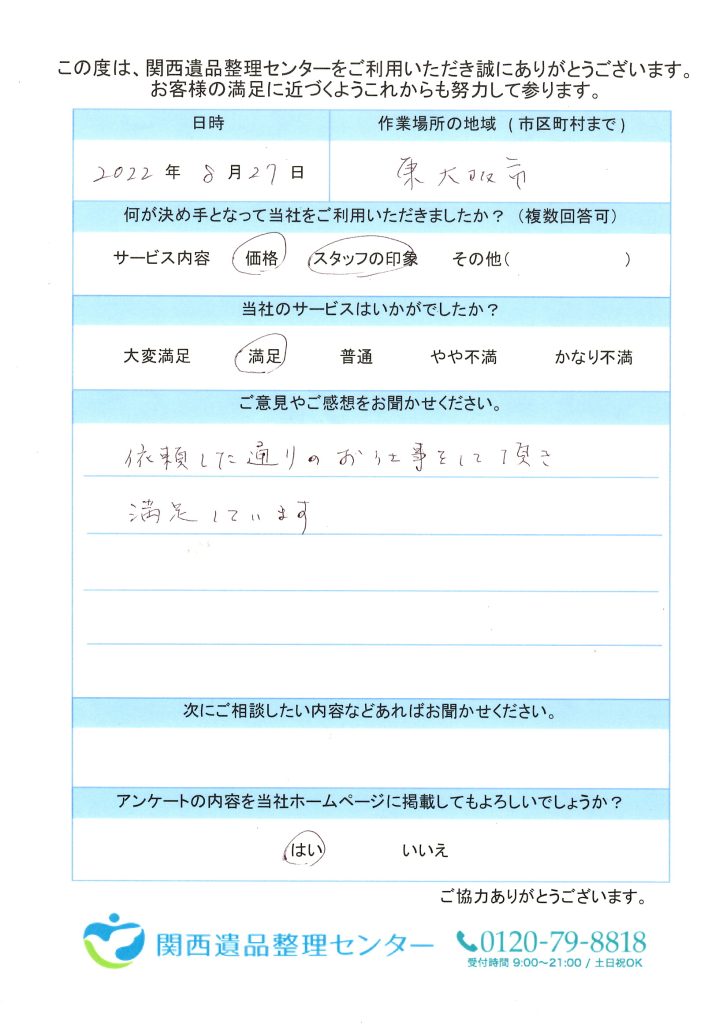 この度は、関西遺品整理センターをご利用いただき誠にありがとうございます。
お客様の満足に近づくようこれからも努力して参ります。
日時
作業場所の地域 (市区町村まで)
2022年 8月27日
東大阪市
何が決め手となって当社をご利用いただきましたか？（複数回答可）
サービス内容 価格 スタッフの印象 その他( )
当社のサービスはいかがでしたか？
大変満足 満足 普通 やや不満 かなり不満
ご意見やご感想をお聞かせください。
依頼した通りのお仕事をして頂き
満足しています
次にご相談したい内容などあればお聞かせください。
アンケートの内容を当社ホームページに掲載してもよろしいでしょうか？
はい いいえ
ご協力ありがとうございます。
関西遺品整理センター
0120-79-8818
受付時間 9:00～21:00 / 土日祝OK